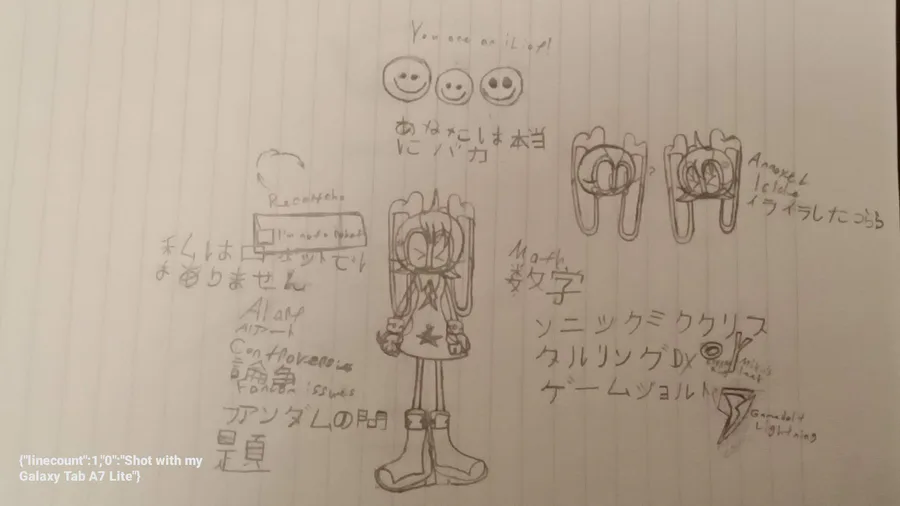 You are an idiot!
あなたは本当
にバカ
Recaptcha
I'm not a robot
私はロボットでは
ありません
AI art
AIアート
Controversies
論争
Fandom issues
ファンダムの問
題
Math
数学
Annoyed
Icicle
イライラしたつらら
ソニックミククリス
タルリングDX
ゲームジョルト
Gamejolt
Lightning
{"linecount":1,"0":"Shot with my
Galaxy Tab A7 Lite"}